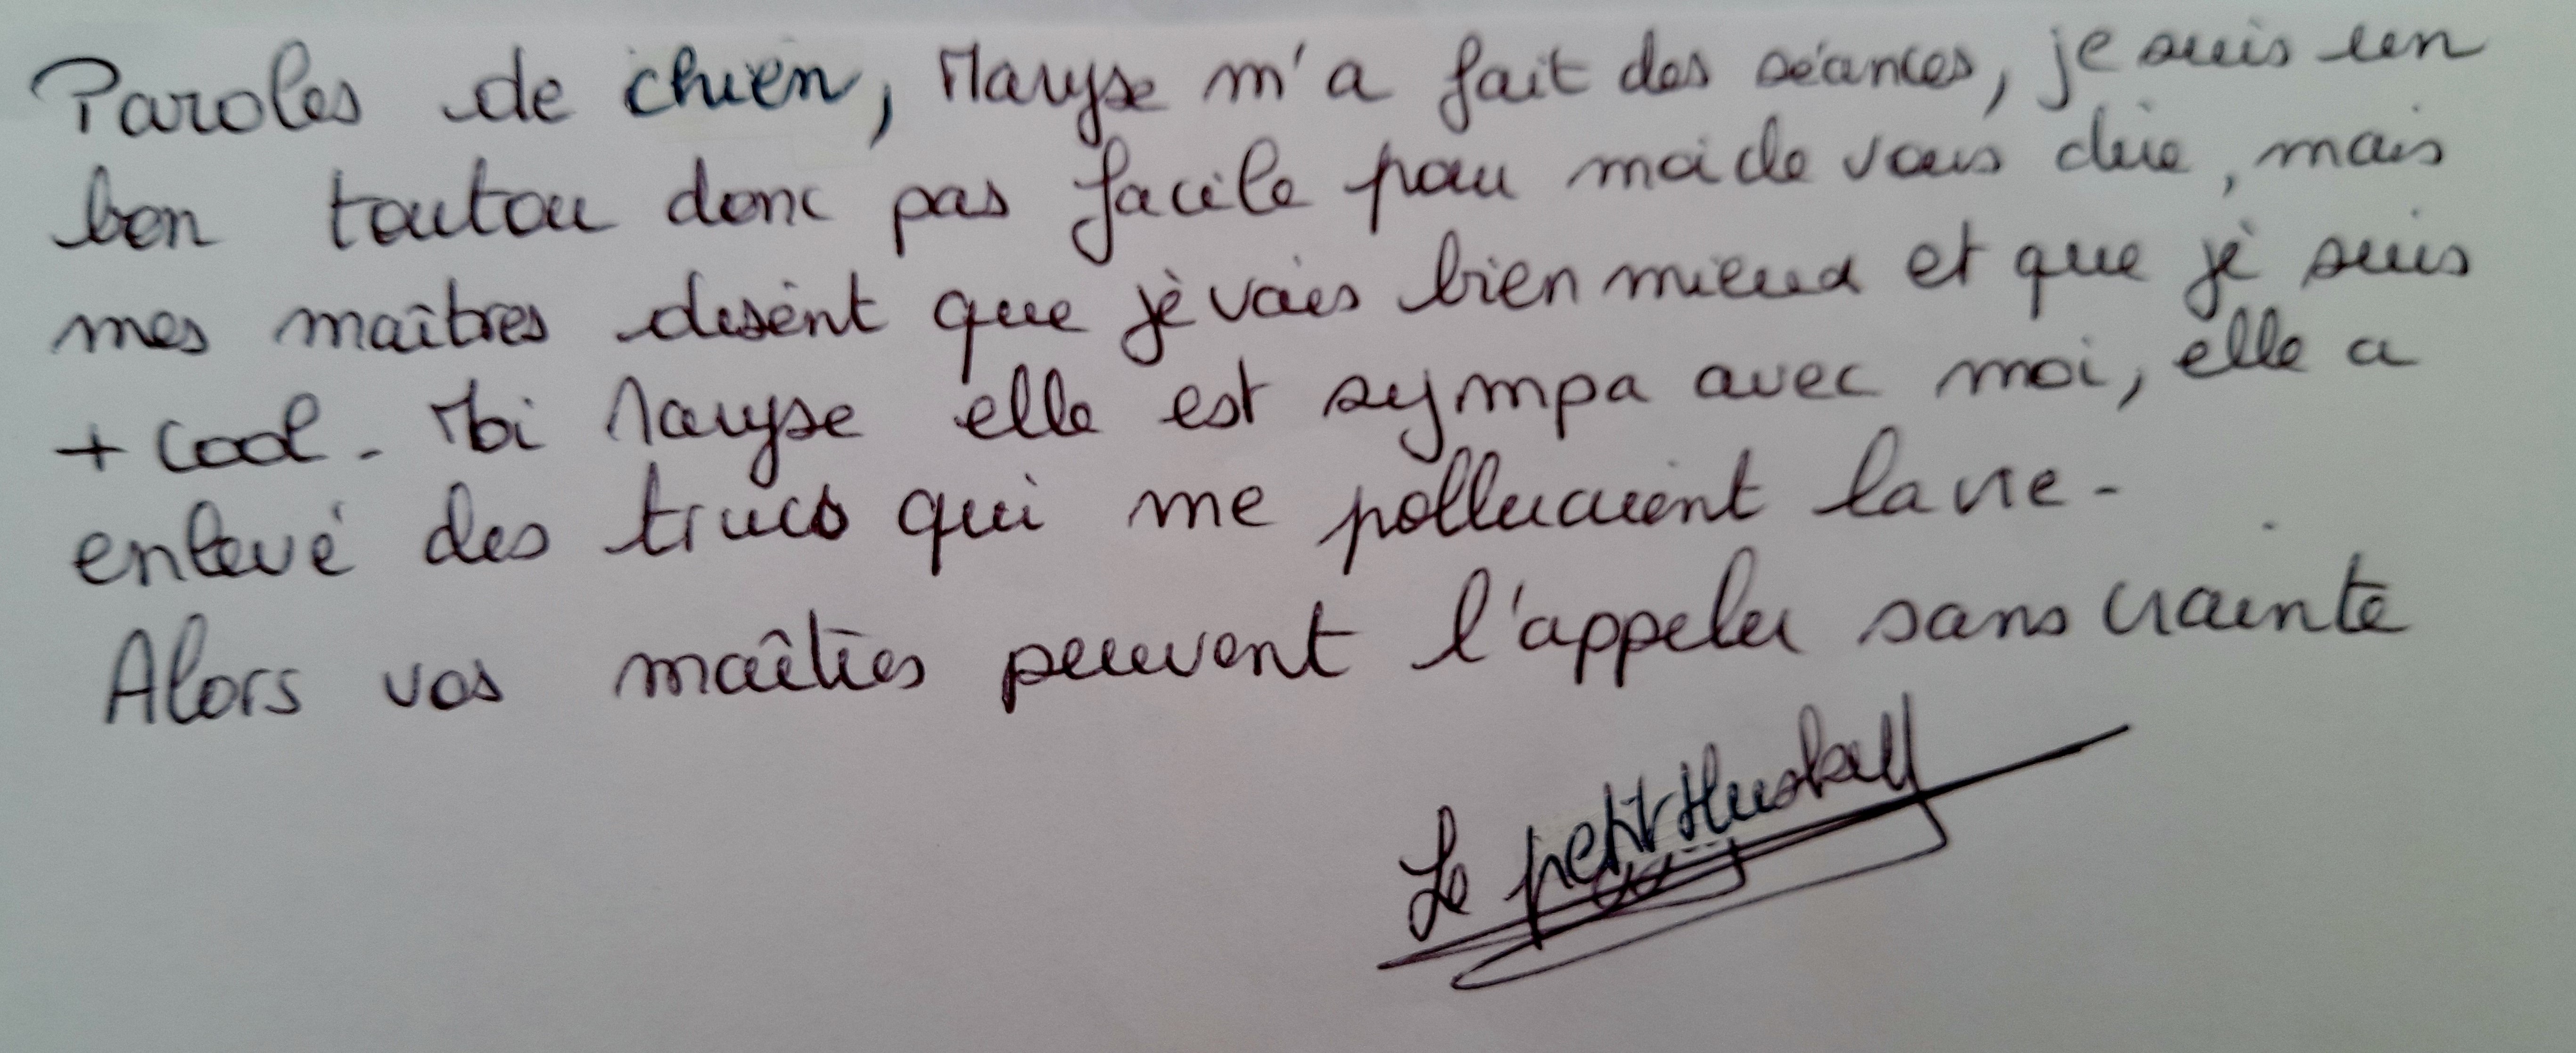 Paroles de chien, Maryse m'a fait des séances, je suis un
bon toutou donc pas facile pour moi de vous dire, mais
mes maîtres disent que je vais bien mieux et que je suis
+ cool. Moi Maryse elle est sympa avec moi, elle a
enlevé des trucs qui me polluaient la vie.
Alors vos maîtres peuvent l'appeler sans crainte
Le petit